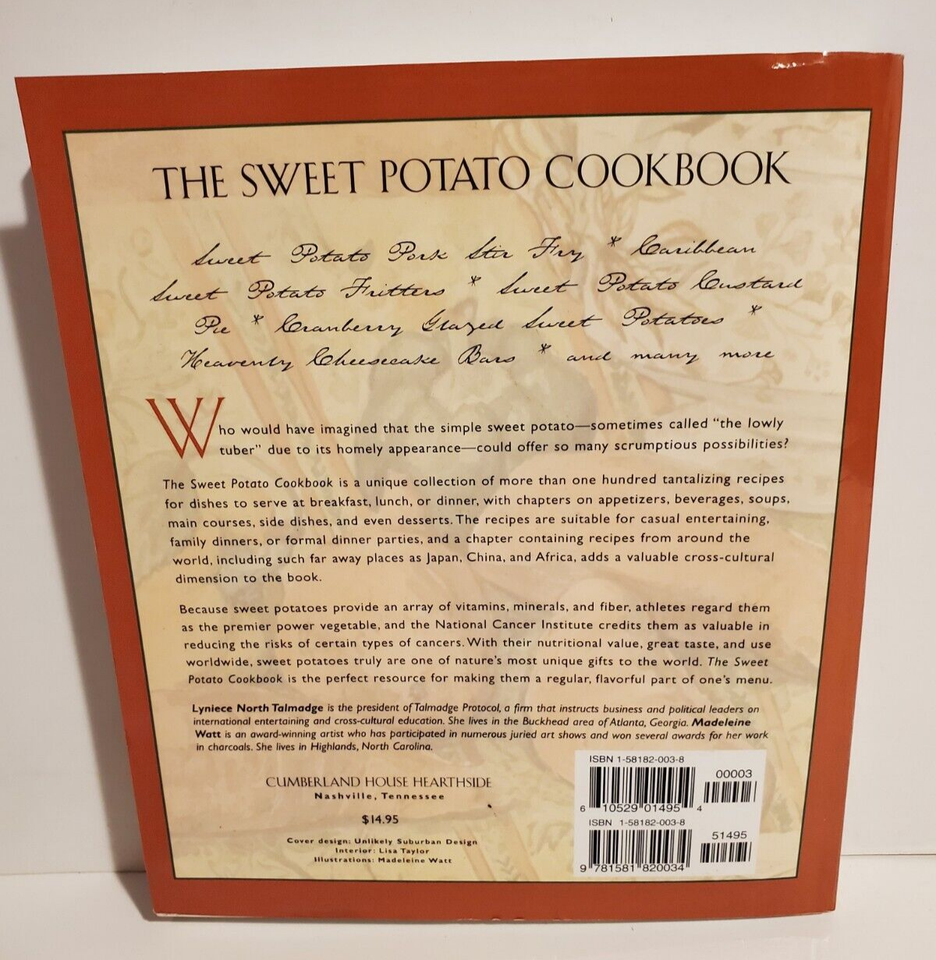 THE SWEET POTATO COOKBOOK
Sweet Potato Pork Stir Fry * Caribbean
Sweet Potato Fritters * Sweet Potato Custard
Pie * Cranberry Glazed Sweet Potatoes *
Heavenly Cheesecake Bars * and many more
Who would have imagined that the simple sweet potato—sometimes called "the lowly
tuber" due to its homely appearance—could offer so many scrumptious possibilities?
The Sweet Potato Cookbook is a unique collection of more than one hundred tantalizing recipes
for dishes to serve at breakfast, lunch, or dinner, with chapters on appetizers, beverages, soups,
main courses, side dishes, and even desserts. The recipes are suitable for casual entertaining,
family dinners, or formal dinner parties, and a chapter containing recipes from around the
world, including such far away places as Japan, China, and Africa, adds a valuable cross-cultural
dimension to the book.
Because sweet potatoes provide an array of vitamins, minerals, and fiber, athletes regard them
as the premier power vegetable, and the National Cancer Institute credits them as valuable in
reducing the risks of certain types of cancers. With their nutritional value, great taste, and use
worldwide, sweet potatoes truly are one of nature's most unique gifts to the world. The Sweet
Potato Cookbook is the perfect resource for making them a regular, flavorful part of one's menu.
Lyniece North Talmadge is the president of Talmadge Protocol, a firm that instructs business and political leaders on
international entertaining and cross-cultural education. She lives in the Buckhead area of Atlanta, Georgia. Madeleine
Watt is an award-winning artist who has participated in numerous juried art shows and won several awards for her work
in charcoals. She lives in Highlands, North Carolina.
CUMBERLAND HOUSE HEARTHSIDE
Nashville, Tennessee
$14.95
Cover design: Unlikely Suburban Design
Interior: Lisa Taylor
Illustrations: Madeleine Watt
ISBN 1-58182-003-8
00003
6 10529 01495 4
ISBN 1-58182-003-8
51495
9 781581 820034